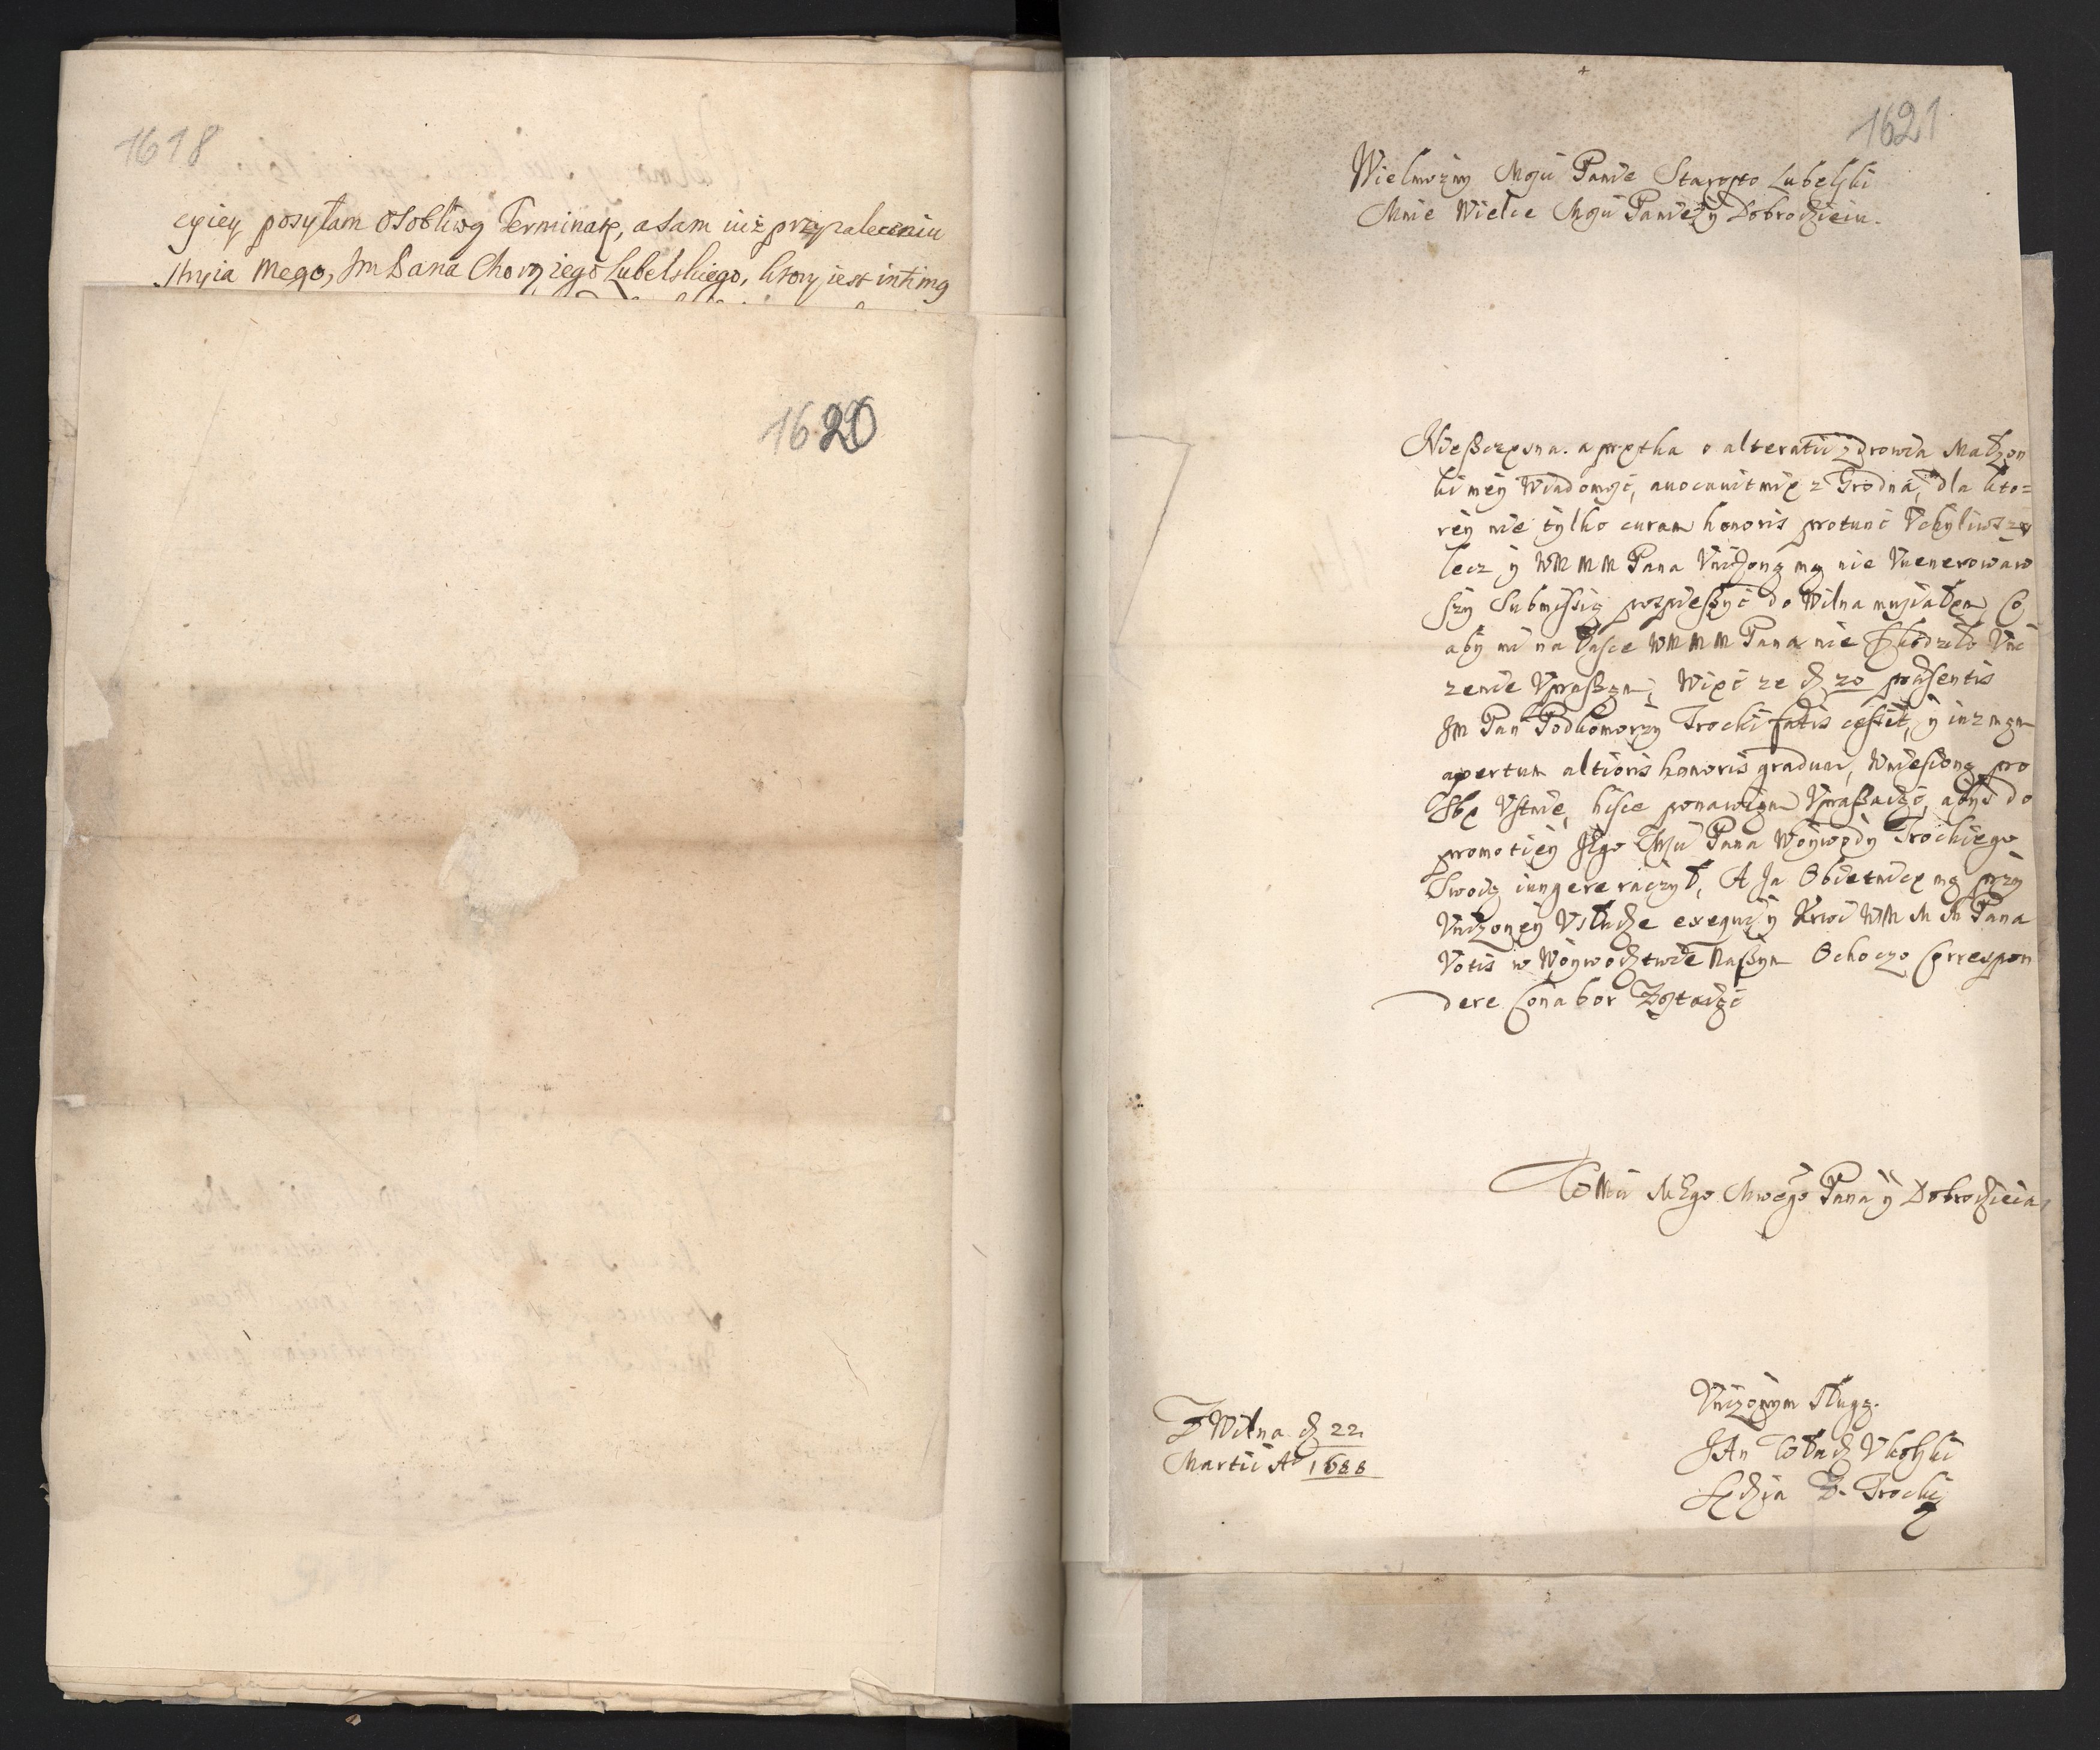 1618
cyiey posyłam osobliwą Terminatę, a sam iuż przy zaleceniu
stryia mego, Jm Pana Chorążego Lubelskiego, ktory iest intimą
1620
1621
Wielmożny Moju Panie Starosto Lubelski
Mnie Wielce Moju Panie y Dobrodzieiu.
Nieszczęsna a prętka o alteratii zdrowia Małżon
ki mey Wiadomość, auocauit mię z Grodna, dla kto=
rey nie tylko curam honoris protunc Vchyliwszy
lecz y WMMM Pana Vniżoną mą nie Vuenerowaw
szy Submissią pospieszyć do Wilna musiałem, Co
aby mi na łasce WMMM Pana nie szkodziło Vni
zenie Vpraszam, Więc ze d 20 praesentis
Jm Pan Podkomorzy Trocki fatis cessit, y iuz mam
apertum altioris honoris gradum, Wniesioną pro
sbę Vstnie, hisce ponawiam Vpraszaiąc, abyś do
promotiey JEgo Mści Pana Woiywody Trockiego
Swoią iungere raczył, A Ja Obietnicę mą przy
Vniżoney Vsłudze exequi y Krwi WM M M Pana
Votis w Woiywodztwie Naszym Ochoczo Correspon
dere Conabor Zostaiąc
MEgo Mwego Pana y Dobrodzieia
Z Wilna d 22
Martii A° 1688
Vniżonym Sługą.
JAn Vkolski
Sędzia Z. Trocki